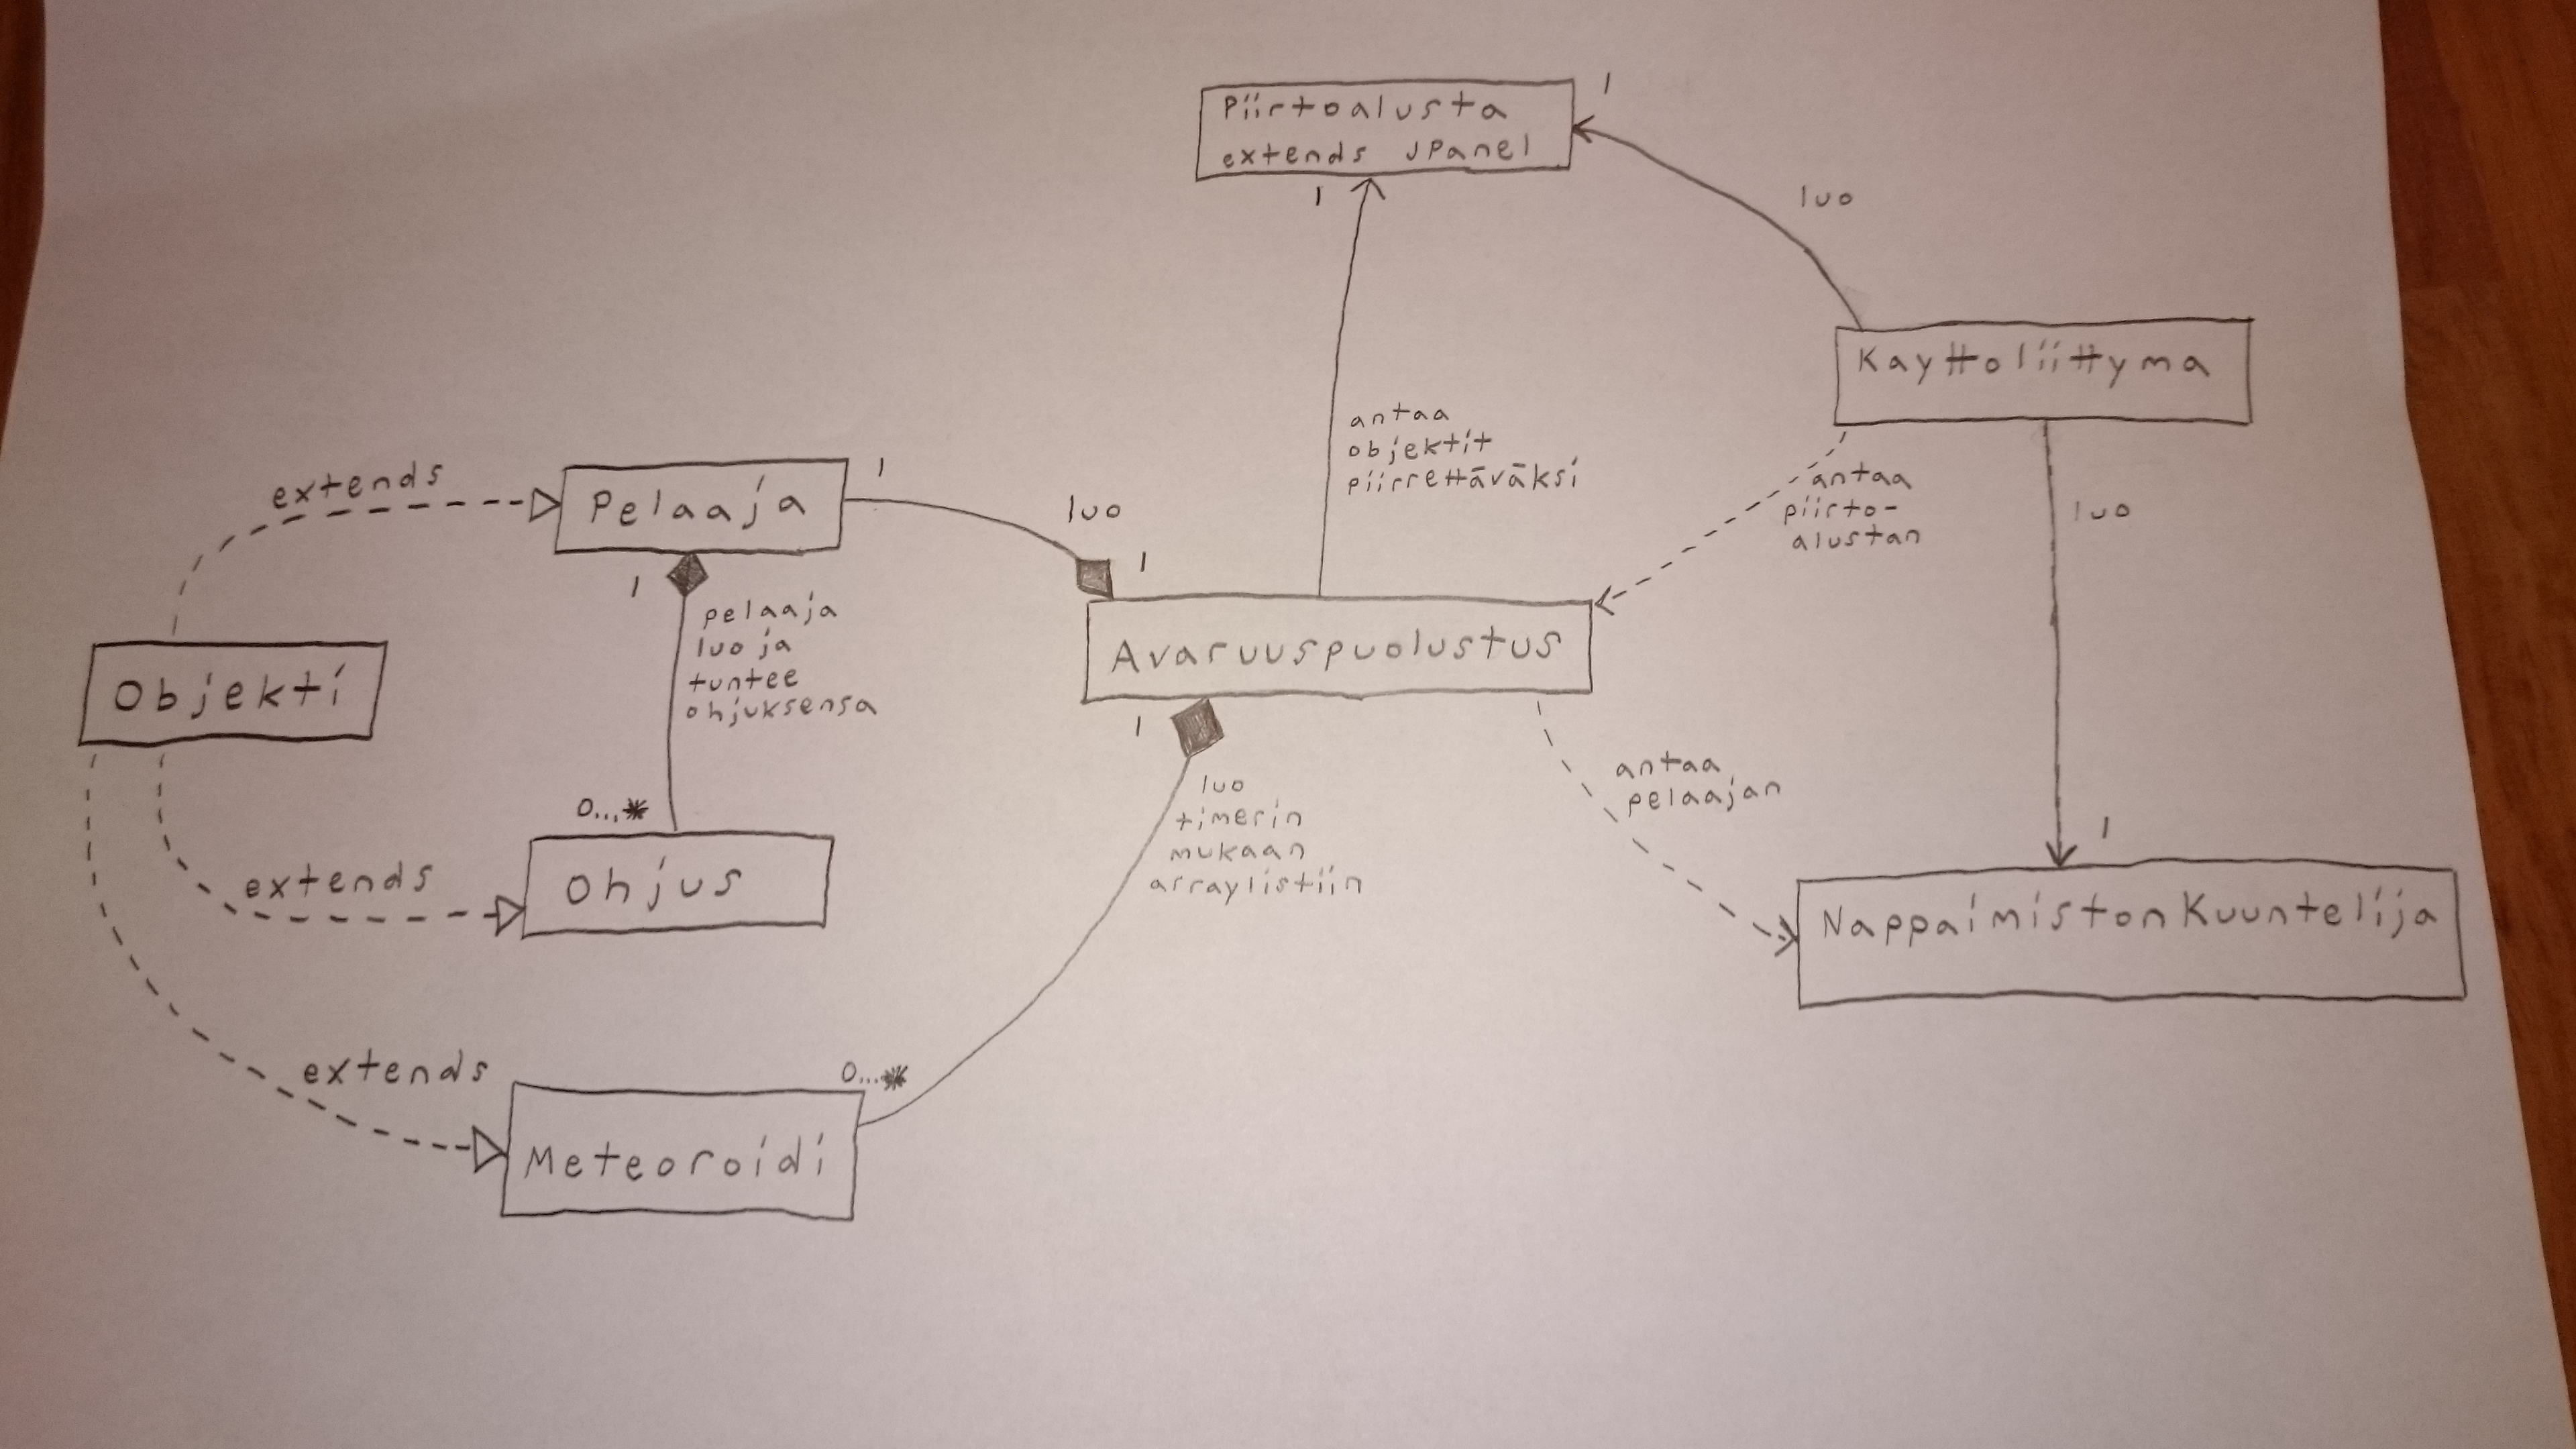 1
Piirtoalusta
extends JPanel
1
luo
Kayttoliittyma
antaa
objektit
piirrettäväksi
extends
Pelaaja
1
luo
1
antaa
piirto-
alustan
luo
1
pelaaja
luo ja
tuntee
ohjuksensa
Objekti
Avaruuspuolustus
1
luo
timerin
mukaan
arraylistiin
antaa
pelaajan
0...*
1
extends
Ohjus
NappaimistonKuuntelija
extends
0...*
Meteoroidi